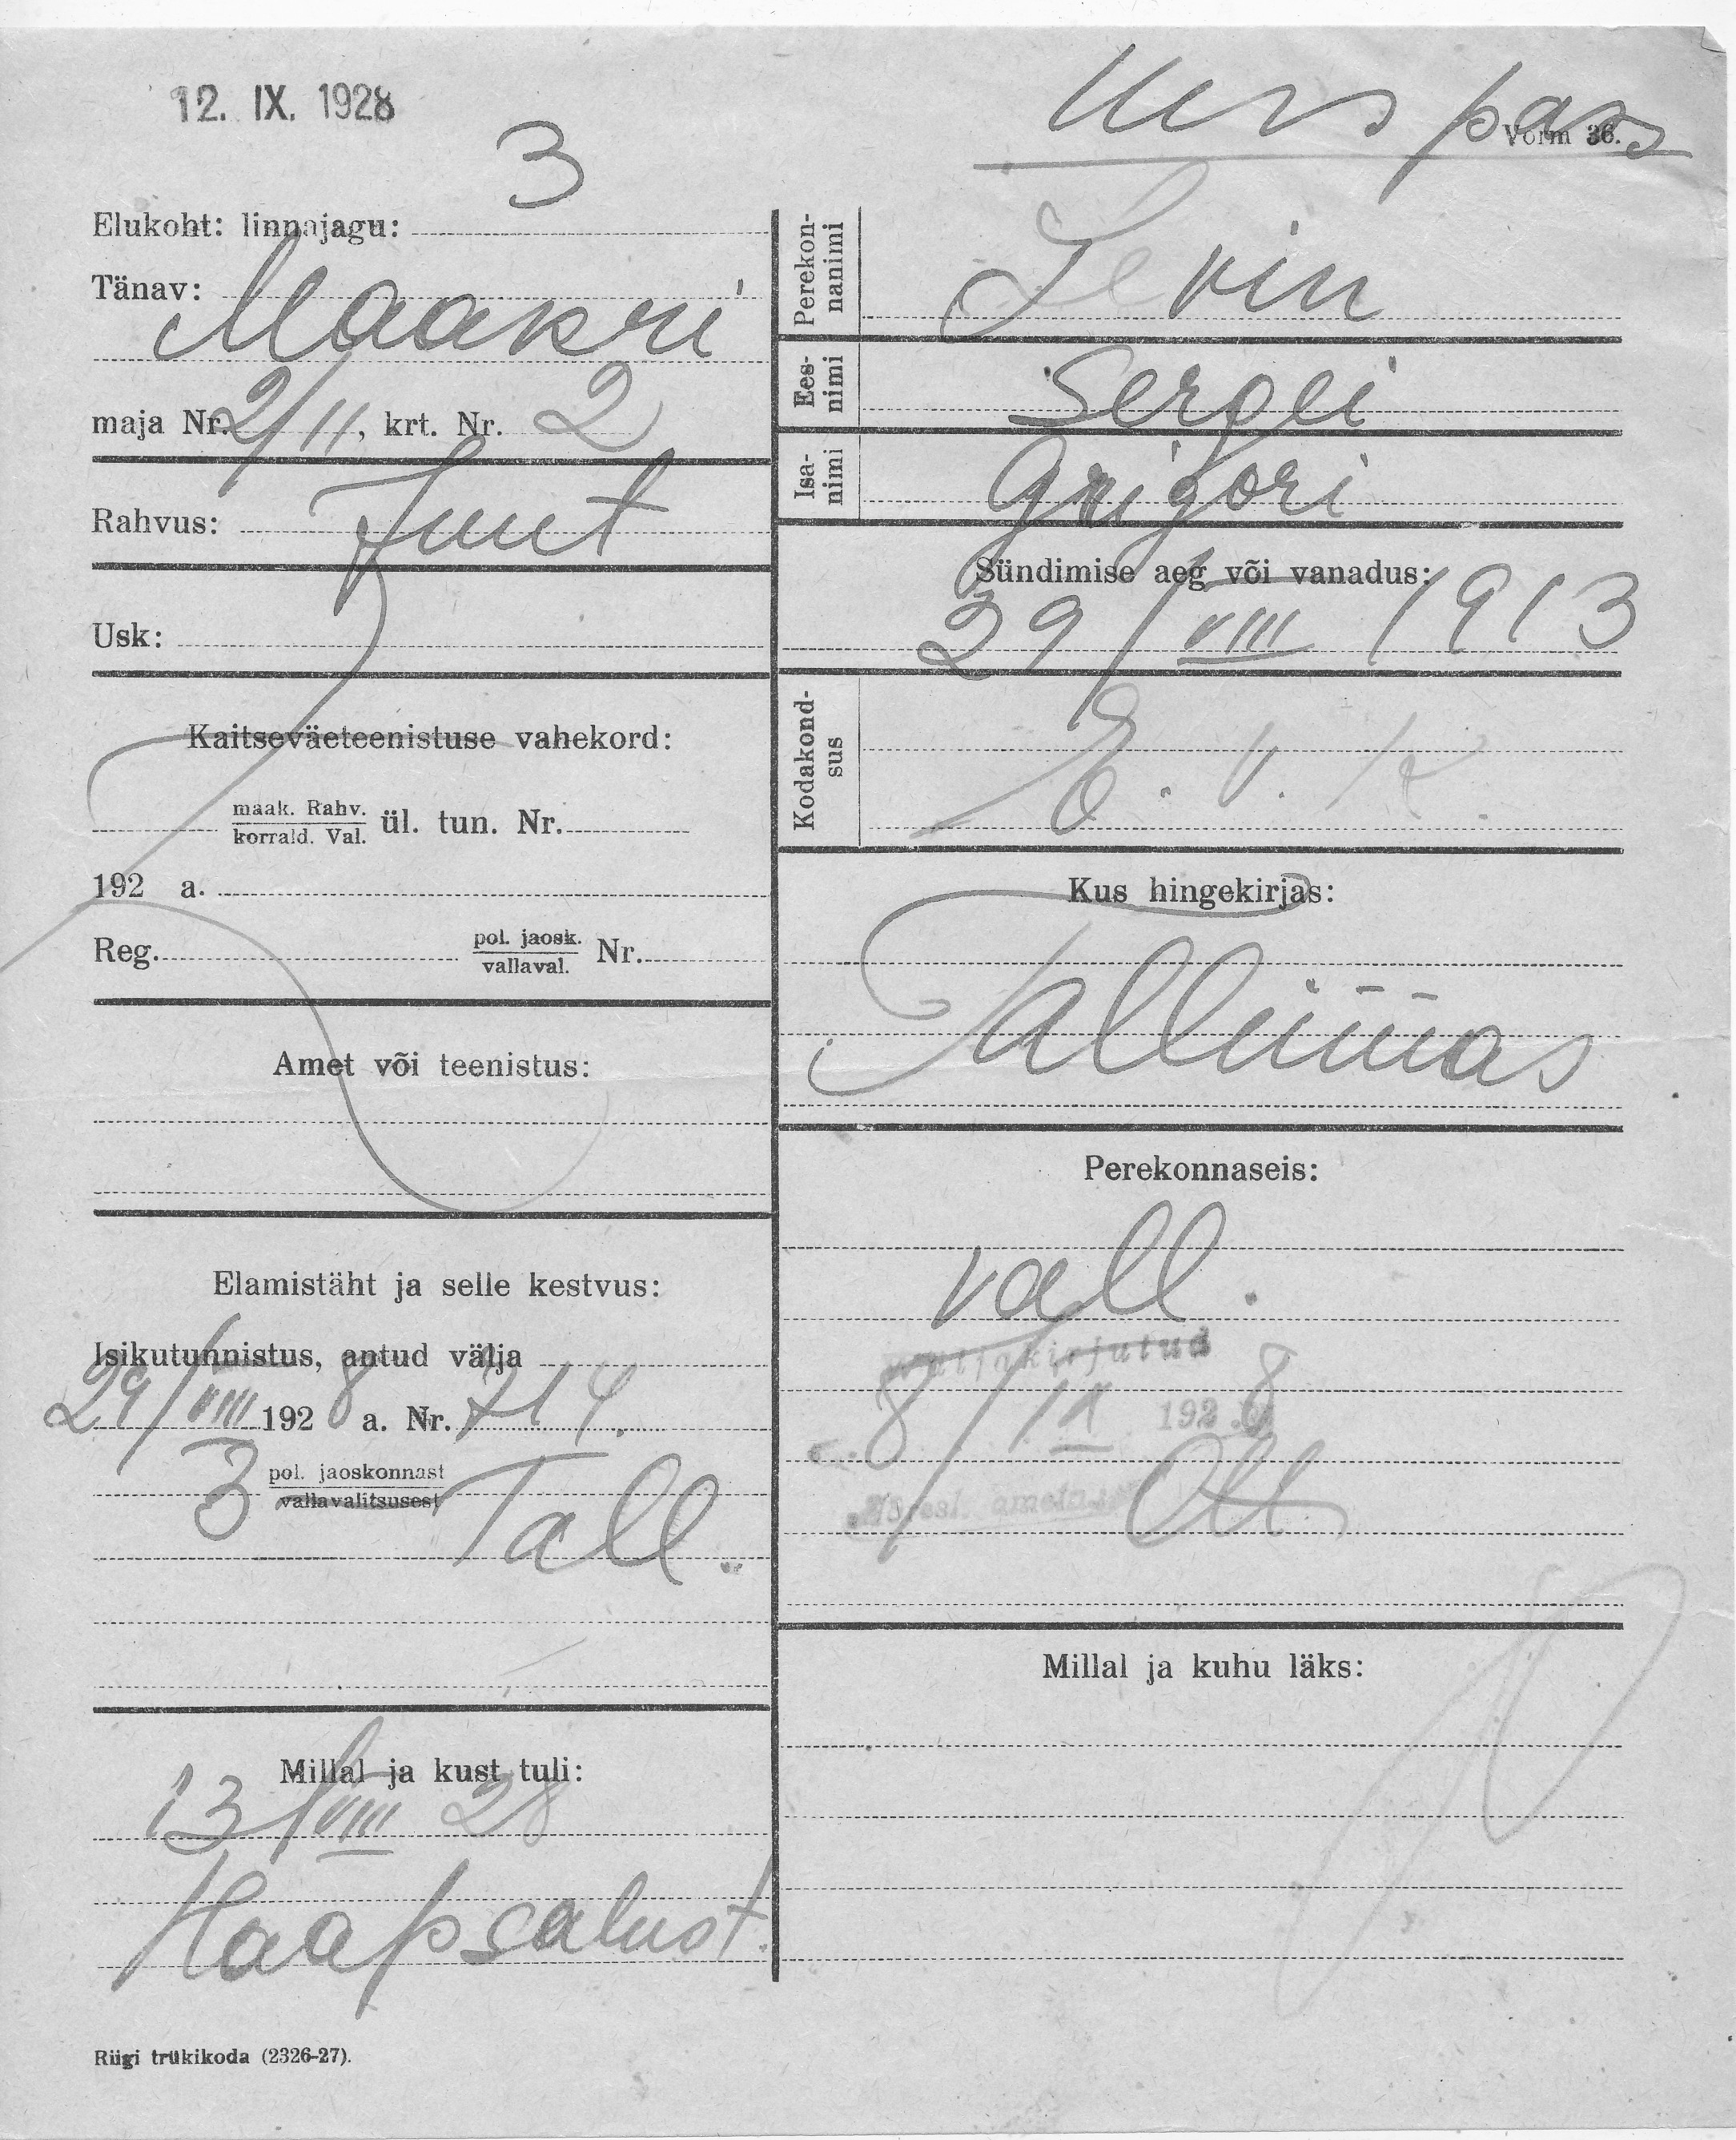 12. IX. 1928
Uus pass
Vorm 36.
Elukoht: linnajagu: 3
Tänav:
Maakri
maja Nr. 2/11, krt. Nr. 2
Rahvus: Juut
Usk:
Kaitseväeteenistuse vahekord:
maak. Rahv.
korrald. Val. ül. tun. Nr.
192 a.
Reg. pol. jaosk.
vallaval. Nr.
Amet või teenistus:
Elamistäht ja selle kestvus:
Isikutunnistus, antud välja
29/VIII 1928 a. Nr. 714.
3 pol. jaoskonnast
vallavalitsusest Tall.
Millal ja kust tuli:
13/VIII 28
Haapsalust.
Riigi trükikoda (2326-27).
Perekon-
nanimi
Levin
Ees-
nimi
Sergei
Isa-
nimi
Grigori
Sündimise aeg või vanadus:
29/VIII 1913
Kodakond-
sus
E. V. K.
Kus hingekirjas:
Tallinnas
Perekonnaseis:
vall.
Väljakirjutud
8/IX 1928
Millal ja kuhu läks: